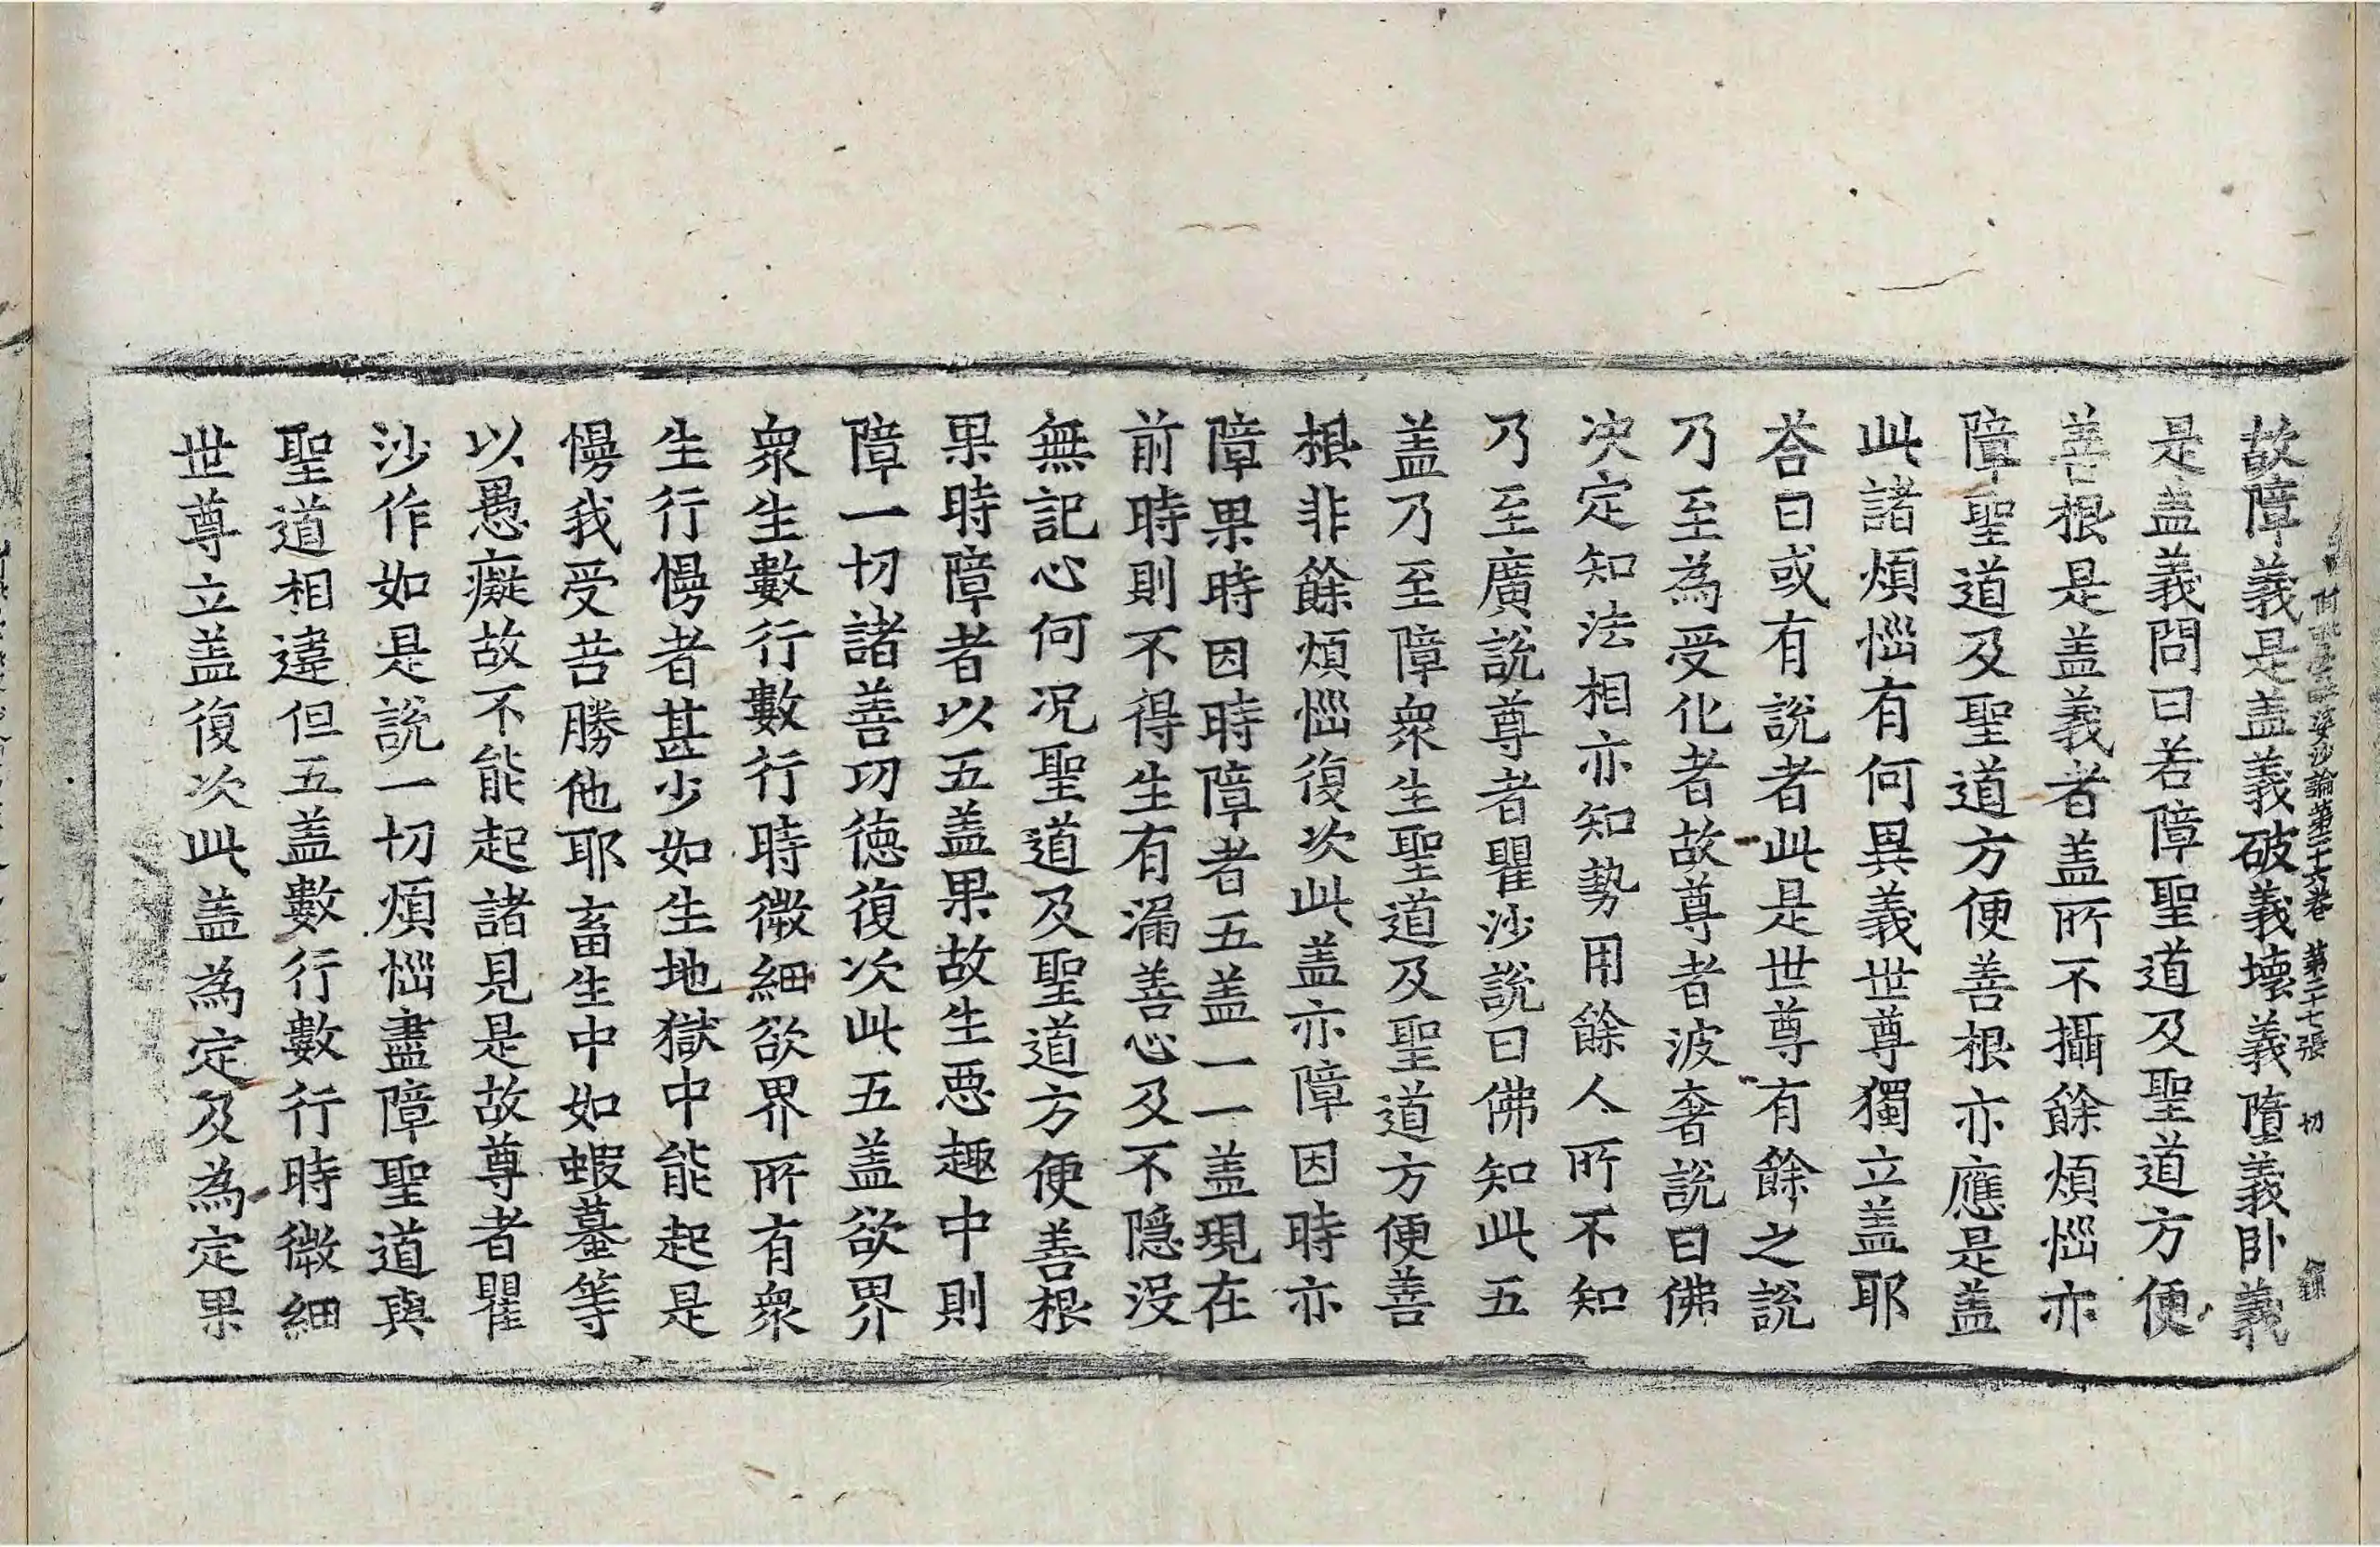 故障義是盖義破義壞義墮義卧義
毗婆沙論第二十六卷 第二十七張 切
是盖義問曰若障聖道及聖道方便
善根是盖義者盖所不攝餘煩惱亦
障聖道及聖道方便善根亦應是盖
此諸煩惱有何異義世尊獨立盖耶
荅曰或有說者此是世尊有餘之說
乃至為受化者故尊者波奢說曰佛
决定知法相亦知勢用餘人所不知
乃至廣說尊者瞿沙說曰佛知此五
盖乃至障衆生聖道及聖道方便善
根非餘煩惱復次此盖亦障因時亦
障果時因時障者五盖一一盖現在
前時則不得生有漏善心及不隱沒
無記心何况聖道及聖道方便善根
果時障者以五盖果故生惡趣中則
障一切諸善功德復次此五盖欲界
衆生數行數行時微細欲界所有衆
生行慢者甚少如生地獄中能起是
慢我受苦勝他耶畜生中如蝦蟇等
以愚癡故不能起諸見是故尊者瞿
沙作如是說一切煩惱盡障聖道與
聖道相違但五盖數行數行時微細
世尊立盖復次此盖為定及為定果